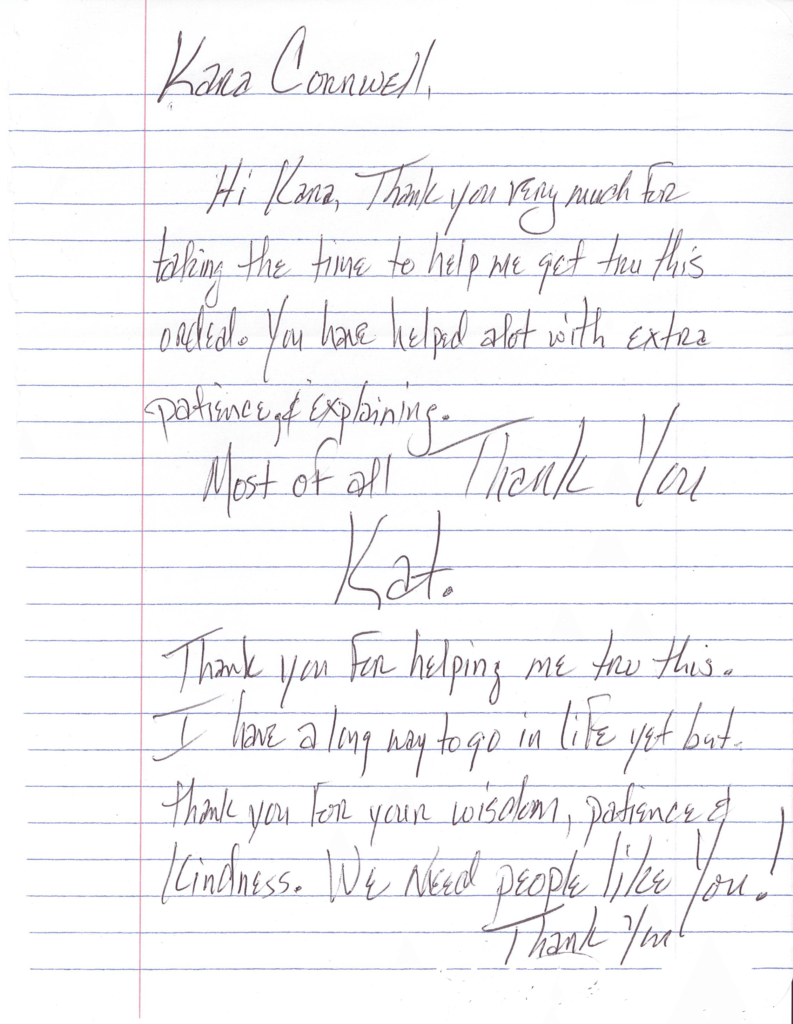 Kara Cornwell,
Hi Kara, Thank you very much for
taking the time to help me get tru this
ordeal. You have helped alot with extra
patience, & explaining.
Most of all Thank You
Kat.
Thank you For helping me tru this.
I have a long way to go in life yet but.
thank you For your wisdom, patience &
Kindness. We Need people like You!
Thank You!